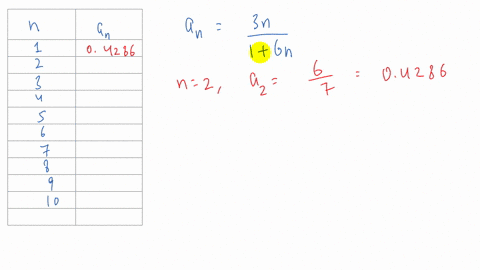 n aₙ
1 0.4286
2
3
4
5
6
7
8
9
10
aₙ = 3n / 1+6n
n=2, a₂ = 6/7 = 0.4286